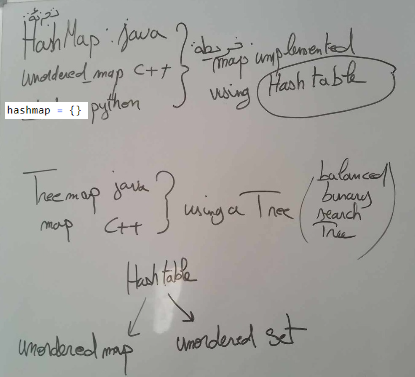 HashMap: java
unordered_map C++
hashmap = {} python
خريطة: map implemented
using Hash table
Treemap java
map C++
using a Tree (balanced
binary
search
Tree)
Hashtable
unordered map unordered set